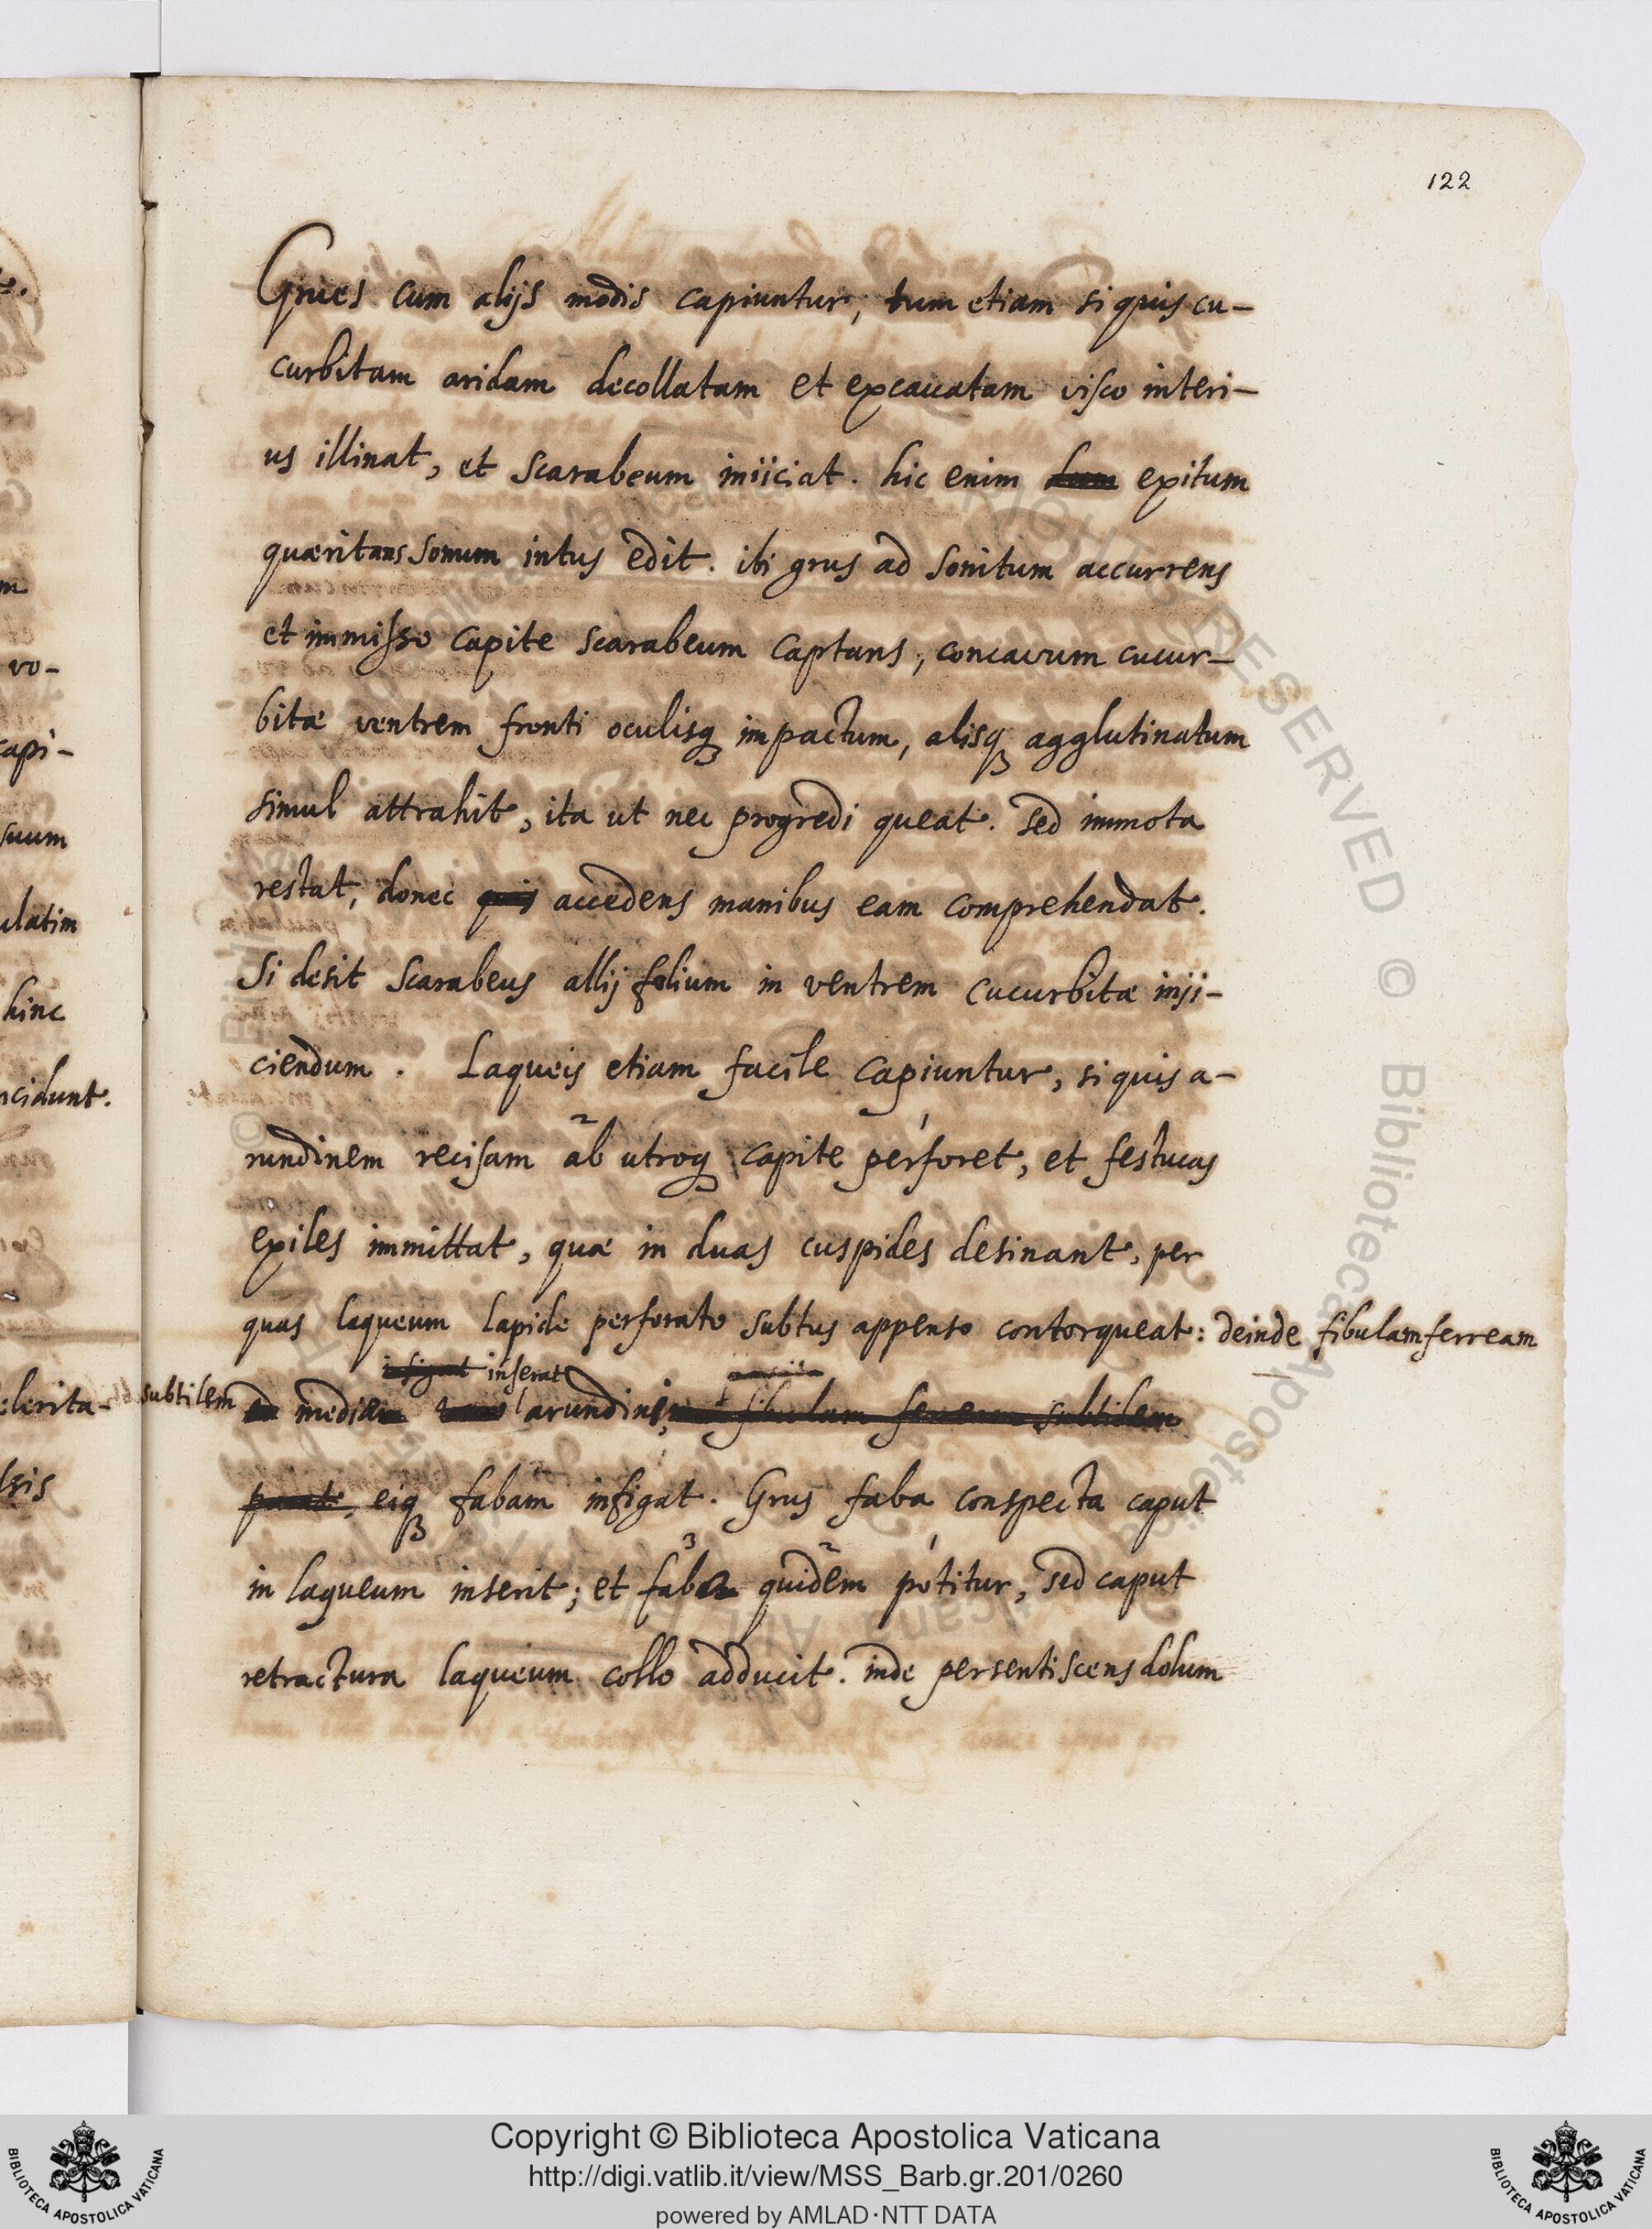 122
Grues cum alijs modis capiuntur, tum etiam si quis cu-
curbitam aridam decollatam et excauatam visco interi-
us illinat, et scarabeum iniiciat. hic enim dum exitum
quæritans sonum intus edit. ibi grus ad sonitum accurrens
et immisso capite scarabeum captans, concavum cucur-
bitæ ventrem fronti oculisq impactum, alisq agglutinatum
simul attrahit, ita ut nec progredi queat. sed immota
restat, donec quis accedens manibus eam comprehendat.
Si desit scarabeus allij folium in ventrem cucurbitæ inji-
ciendum. Laqueis etiam facile capiuntur, si quis a-
rundinem recisam ab utroq capite perforet, et festucas
exiles immittat, quæ in duas cuspides desinant, per
quas laqueum lapide perforato subtus appenso contorqueat: deinde fibulam ferream
infigat inserat
subtilem mediæ arundini, fibulam ferream subtilem
parat, eiq fabam infigat. Grus faba conspecta caput
in laqueum inserit; et faba quidem potitur, sed caput
retractura laqueum collo adducit. inde persentiscens dolum
vo-
capi-
suum
ulatim
hinc
ncidunt.
elerita-
Copyright © Biblioteca Apostolica Vaticana
http://digi.vatlib.it/view/MSS_Barb.gr.201/0260
powered by AMLAD·NTT DATA
BIBLIOTECA APOSTOLICA VATICANA
BIBLIOTECA APOSTOLICA VATICANA